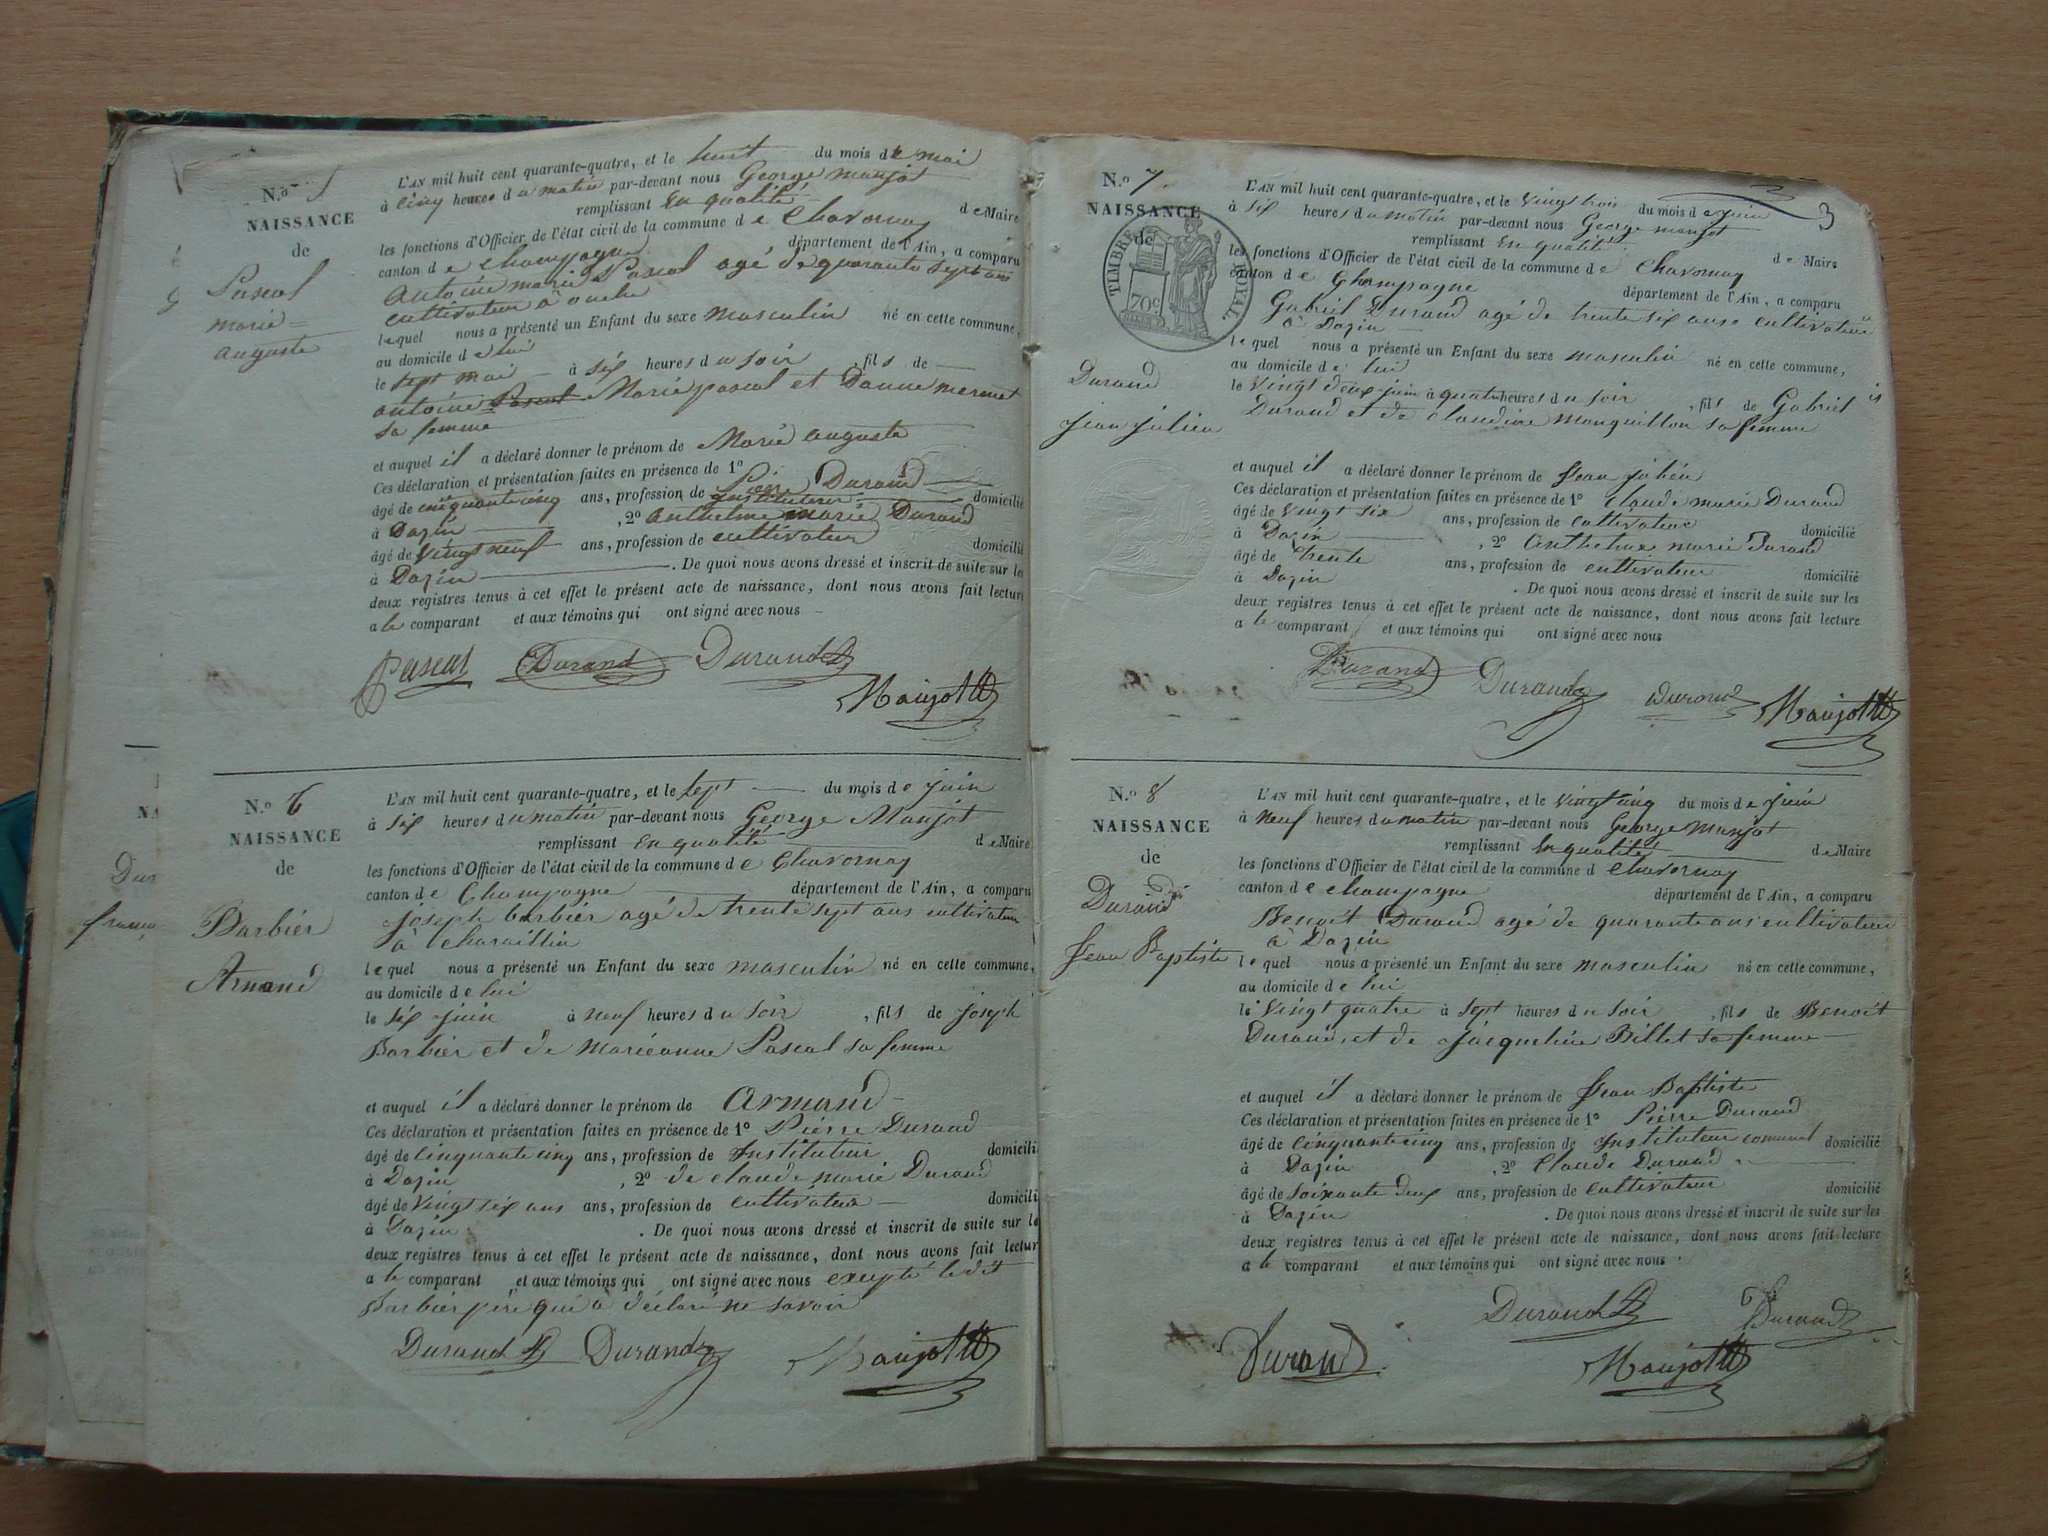 N.o 5
NAISSANCE
de
Pascal
marie
auguste
L'AN mil huit cent quarante-quatre, et le huit du mois de mai
à cinq heures du matin par-devant nous George manjot
remplissant en qualité de Maire
les fonctions d'Officier de l'état civil de la commune de Chavornay
canton de Champagne département de l'Ain, a comparu
Antoine marie Pascal agé de quarante sept ans
cultivateur à
lequel nous a présenté un Enfant du sexe masculin né en cette commune,
au domicile de lui
le sept mai à six heures du soir, fils de
antoine Pascal Marie pascal et Danne mermet
sa femme
et auquel il a déclaré donner le prénom de Marie auguste
Ces déclaration et présentation faites en présence de 1o Pierre Durand
âgé de cinquante cinq ans, profession de instituteur domicilié
à Dazin, 2o anthelme marie Durand
âgé de vingt neuf ans, profession de cultivateur domicilié
à Dazin. De quoi nous avons dressé et inscrit de suite sur les
deux registres tenus à cet effet le présent acte de naissance, dont nous avons fait lecture
a le comparant et aux témoins qui ont signé avec nous
Pascal Durand Durand
Manjot
N.o 6
NAISSANCE
de
Barbier
Armand
L'AN mil huit cent quarante-quatre, et le sept du mois de juin
à six heures du matin par-devant nous George Manjot
remplissant en qualité de Maire
les fonctions d'Officier de l'état civil de la commune de Chavornay
canton de Champagne département de l'Ain, a comparu
joseph barbier agé de trente sept ans cultivateur
à Charaillin
lequel nous a présenté un Enfant du sexe masculin né en cette commune,
au domicile de lui
le six juin à neuf heures du soir, fils de joseph
Barbier et de marieanne Pascal sa femme
et auquel il a déclaré donner le prénom de Armand
Ces déclaration et présentation faites en présence de 1o Pierre Durand
âgé de cinquante cinq ans, profession de instituteur domicili
à Dazin, 2o de claude marie Durand
âgé de vingt six ans ans, profession de cultivateur domicili
à Dazin. De quoi nous avons dressé et inscrit de suite sur le
deux registres tenus à cet effet le présent acte de naissance, dont nous avons fait lectur
a le comparant et aux témoins qui ont signé avec nous excepté le dit
Barbier père qui a déclaré ne savoir
Durand Durand Manjot
3
N.o 7
NAISSANCE
de
TIMBRE ROYAL
70c
Durand
jean julien
L'AN mil huit cent quarante-quatre, et le vingt trois du mois de juin
à six heures du matin par-devant nous George manjot
remplissant en qualité de Maire
les fonctions d'Officier de l'état civil de la commune de Chavornay
canton de Champagne département de l'Ain, a comparu
Gabriel Durand agé de trente six ans cultivateur
à Dazin
lequel nous a présenté un Enfant du sexe masculin né en cette commune,
au domicile de lui
le vingt deux juin à quatre heures du soir, fils de Gabriel
Durand et de claudine monguillon sa femme
et auquel il a déclaré donner le prénom de Jean julien
Ces déclaration et présentation faites en présence de 1o claude marie Durand
âgé de vingt six ans, profession de cultivateur domicilié
à Dazin, 2o Anthelme marie Durand
âgé de trente ans, profession de cultivateur domicilié
à Dazin. De quoi nous avons dressé et inscrit de suite sur les
deux registres tenus à cet effet le présent acte de naissance, dont nous avons fait lecture
a le comparant et aux témoins qui ont signé avec nous
Durand Durand Durand Manjot
N.o 8
NAISSANCE
de
Durand
Jean Baptiste
L'AN mil huit cent quarante-quatre, et le vingt cinq du mois de juin
à neuf heures du matin par-devant nous George manjot
remplissant en qualité de Maire
les fonctions d'Officier de l'état civil de la commune de Chavornay
canton de champagne département de l'Ain, a comparu
Benoit Durand agé de quarante ans cultivateur
à Dazin
lequel nous a présenté un Enfant du sexe masculin né en cette commune,
au domicile de lui
le vingt quatre à sept heures du soir, fils de Benoit
Durand, et de jacqueline Billet sa femme
et auquel il a déclaré donner le prénom de Jean Baptiste
Ces déclaration et présentation faites en présence de 1o Pierre Durand
âgé de cinquante cinq ans, profession de instituteur communal domicilié
à Dazin, 2o Claude Durand
âgé de soixante deux ans, profession de cultivateur domicilié
à Dazin. De quoi nous avons dressé et inscrit de suite sur les
deux registres tenus à cet effet le présent acte de naissance, dont nous avons fait lecture
a le comparant et aux témoins qui ont signé avec nous.
Durand Durand
Durand Manjot